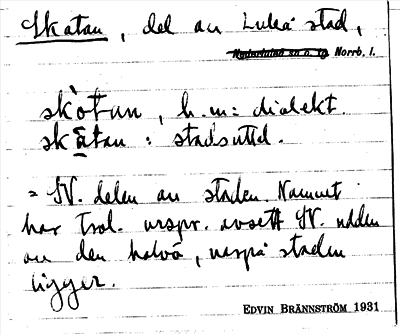 Skatan, del av Luleå stad,
Nederluleå sn o. tg. Norrb. l.
skòtan, b. m: dialekt.
skàtan : stadsuttal.
= SV. delen av staden. Namnet
har trol. urspr. avsett SV. udden
av den halvö, varpå staden
ligger.
EDVIN BRÄNNSTRÖM 1931